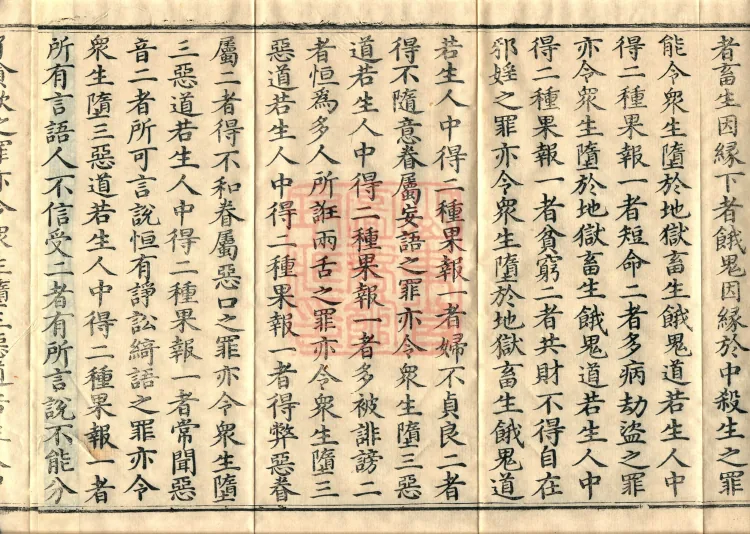 者畜生因緣下者餓鬼因緣於中殺生之罪
能令衆生墮於地獄畜生餓鬼道若生人中
得二種果報一者短命二者多病劫盜之罪
亦令衆生墮於地獄畜生餓鬼道若生人中
得二種果報一者貧窮二者共財不得自在
邪婬之罪亦令衆生墮於地獄畜生餓鬼道
若生人中得二種果報一者婦不貞良二者
得不隨意眷屬妄語之罪亦令衆生墮三惡
道若生人中得二種果報一者多被誹謗二
者恒爲多人所誑兩舌之罪亦令衆生墮三
惡道若生人中得二種果報一者得弊惡眷
屬二者得不和眷屬惡口之罪亦令衆生墮
三惡道若生人中得二種果報一者常聞惡
音二者所可言說恒有諍訟綺語之罪亦令
衆生墮三惡道若生人中得二種果報一者
所有言語人不信受二者有所言說不能分
貪欲之罪亦令衆生墮三惡道若生人中